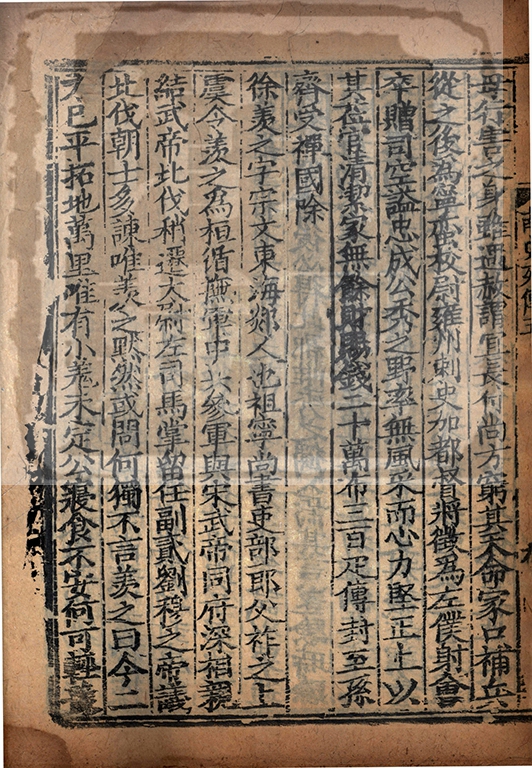 母行害之身雖遇赦謂宜長付尚方窮其天命家口補兵
從之後為寧蠻校尉雍州刺史加都督將徵為左僕射會
卒贈司空諡忠成公秀之野率無風采而心力堅正上以
其莅官清潔家無餘財賜錢二十萬布三百疋傳封至孫
齊受禪國除
徐羨之字宗文東海郯人也祖寧尚書吏部郎父祚之上
虞令羨之為桓脩撫軍中兵參軍與宋武帝同府深相親
結武帝北伐稍遷太尉左司馬掌留任副貳劉穆之帝議
北伐朝士多諫唯羨之默然或問何獨不言羨之曰今二
方已平拓地萬里唯有小羌未定公寢食不安何可輕